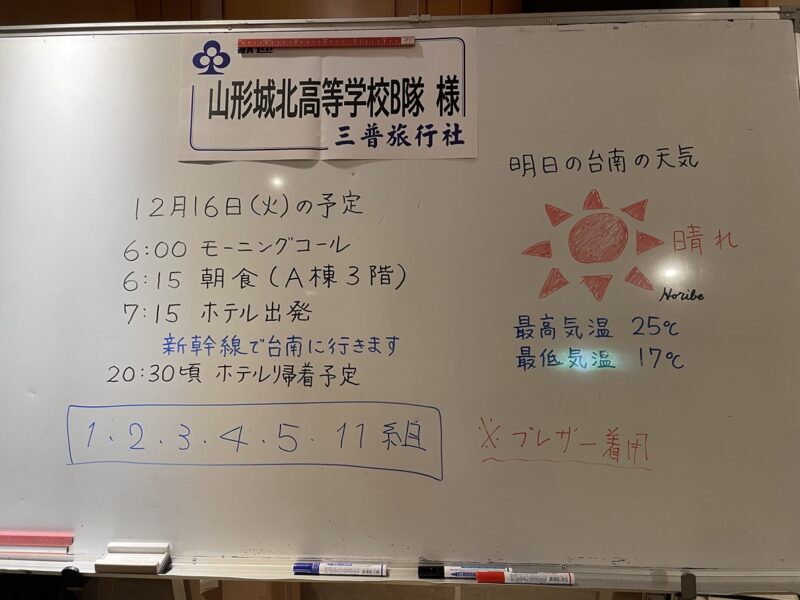 山形城北高等学校B隊 様
三普旅行社
12月16日(火)の予定
6:00 モーニングコール
6:15 朝食(A棟3階)
7:15 ホテル出発
新幹線で台南に行きます
20:30頃 ホテル帰着予定
1.2.3.4.5.11組
明日の台南の天気
晴れ
Noribe
最高気温 25℃
最低気温 17℃
※ブレザー着用